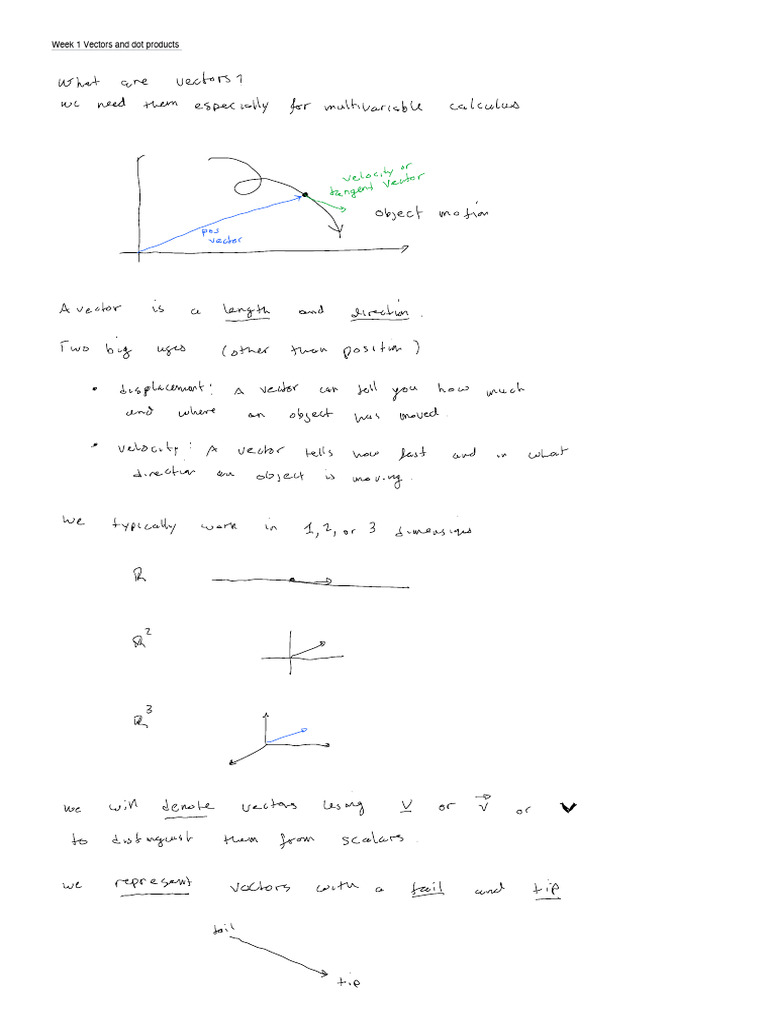 Week 1 Vectors and dot products
What are vectors?
we need them especially for multivariable calculus
velocity or
tangent vector
object motion
pos
vector
A vector is a length and direction.
Two big uses (other than position)
• displacement: A vector can tell you how much
and where an object has moved.
• velocity: A vector tells how fast and in what
direction an object is moving.
We typically work in 1, 2, or 3 dimensions
ℝ
ℝ²
ℝ³
we will denote vectors using v or v⃗ or v
to distinguish them from scalars.
we represent vectors with a tail and tip
tail
tip